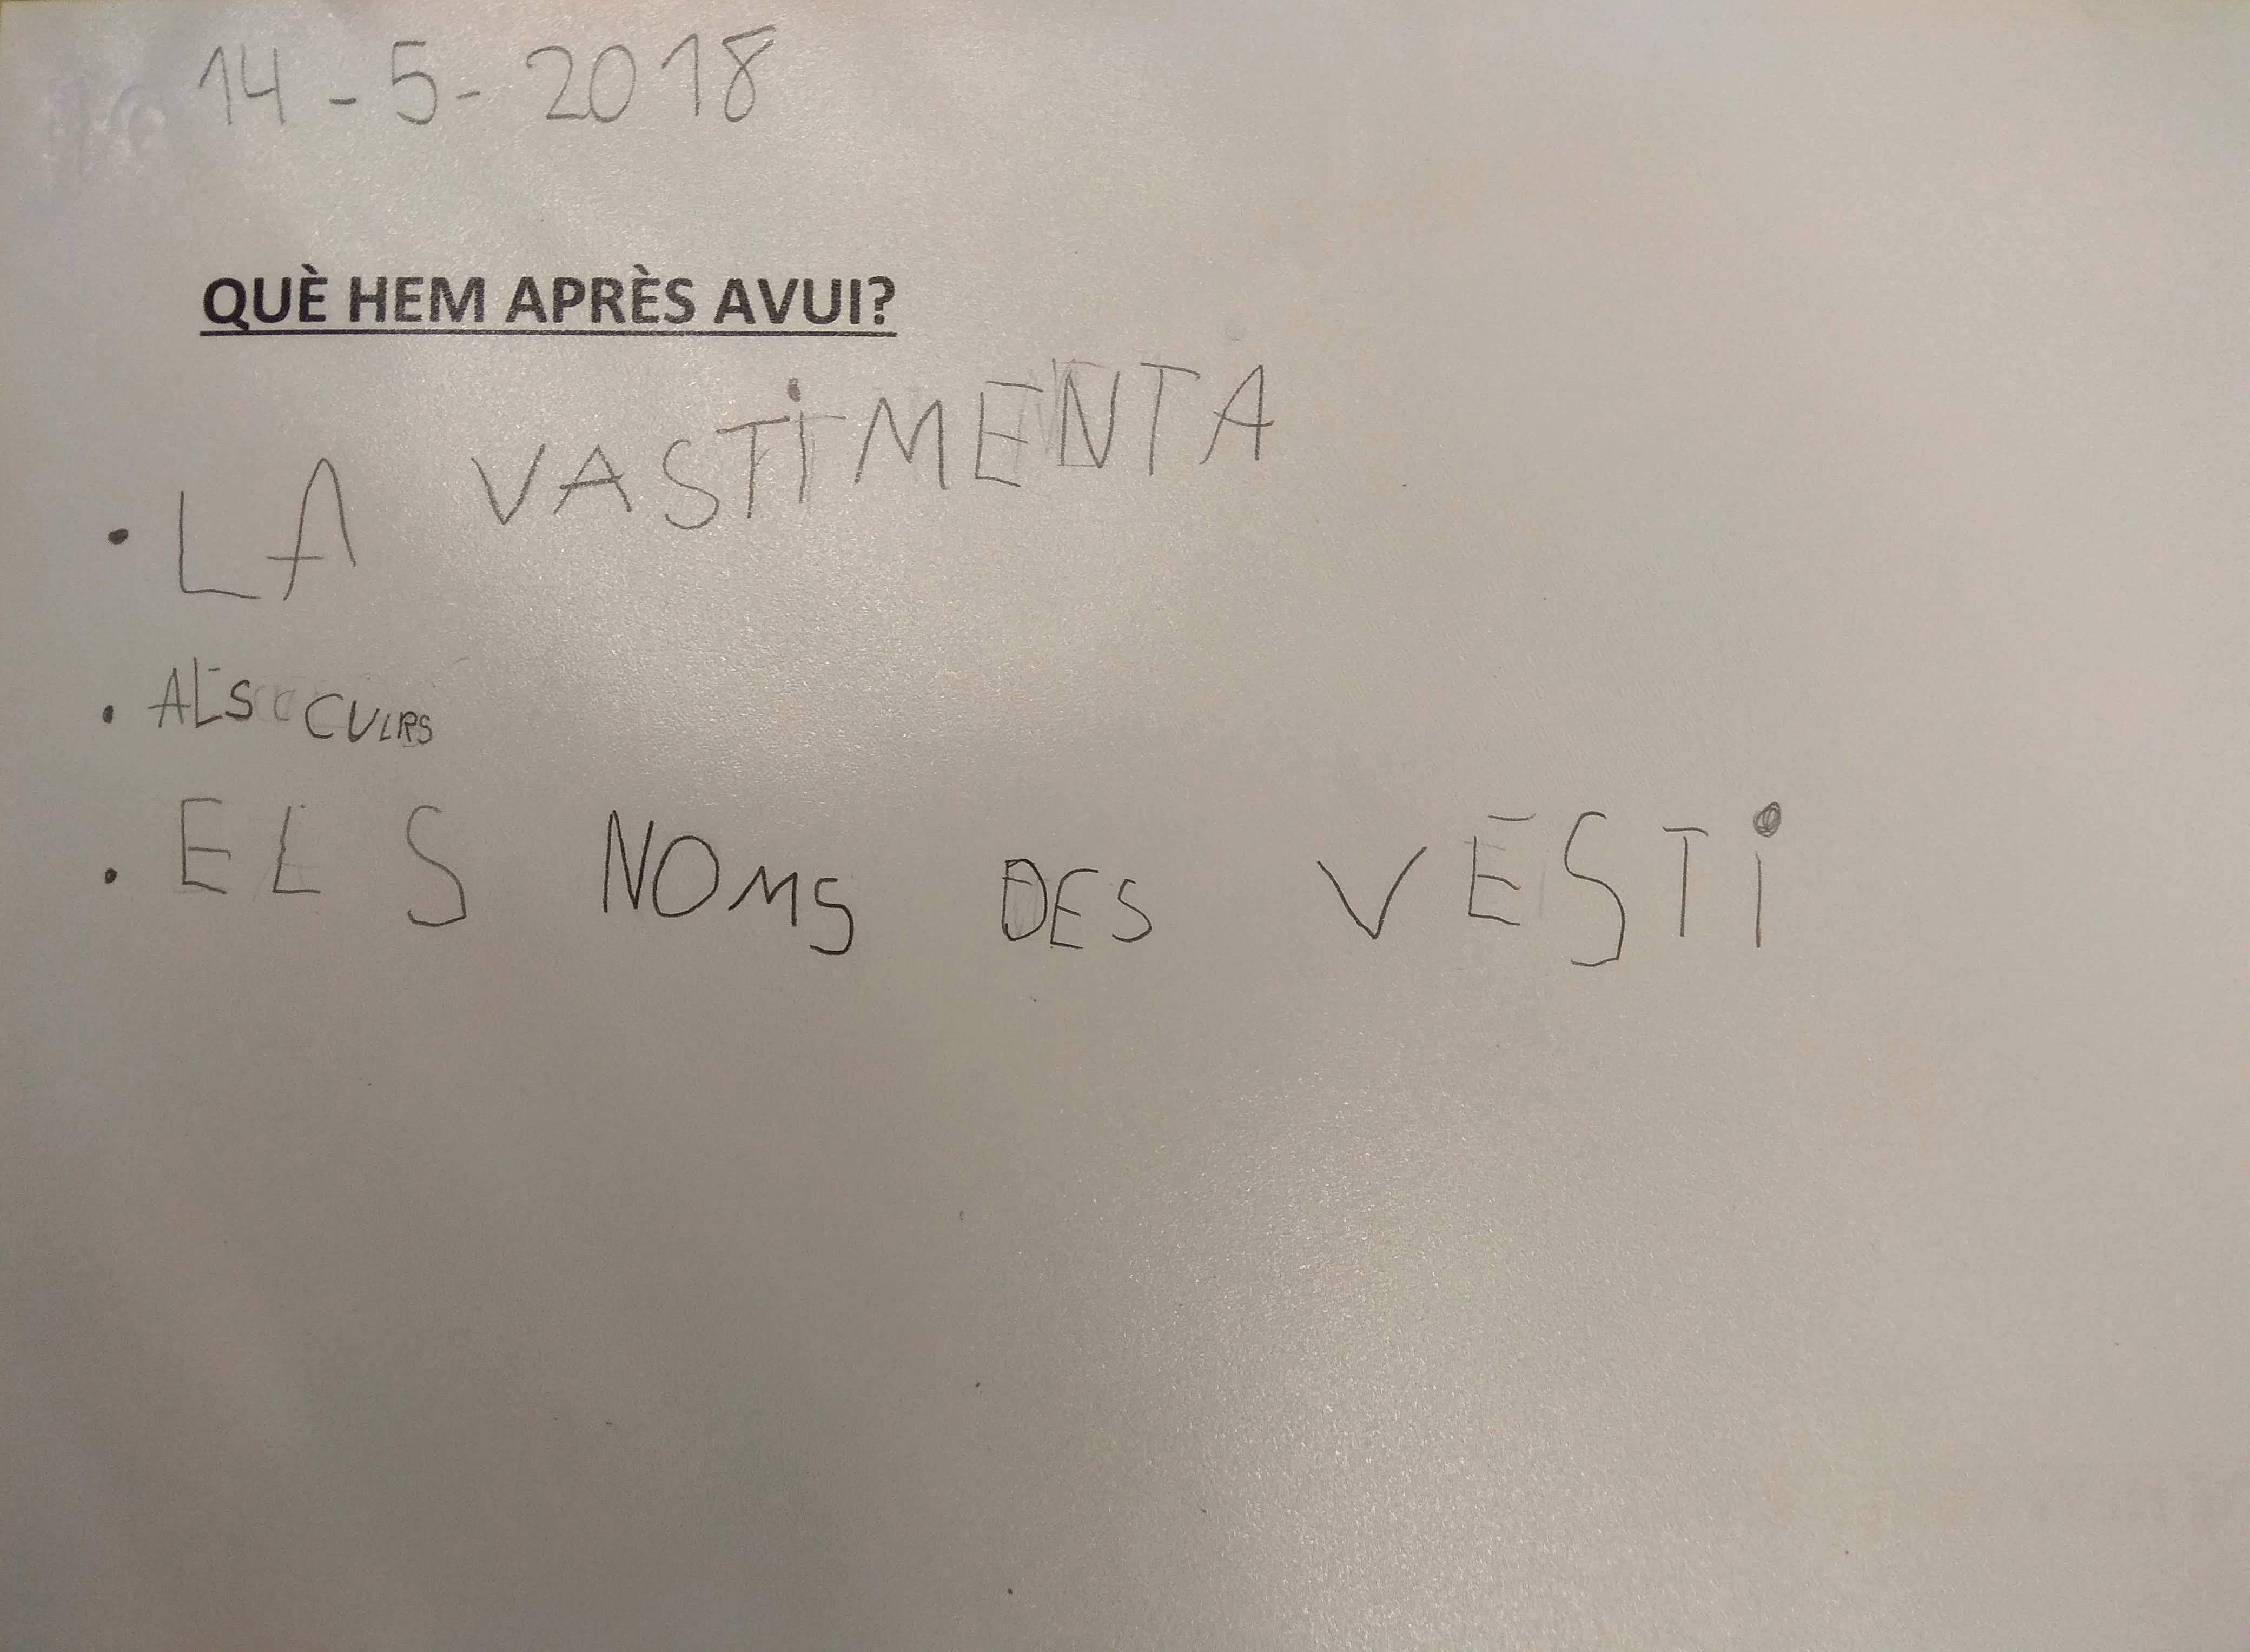 14-5-2018
QUÈ HEM APRÈS AVUI?
• LA VASTiMENTA
• ALS CULRS
• ELS NOMS DES VESTi